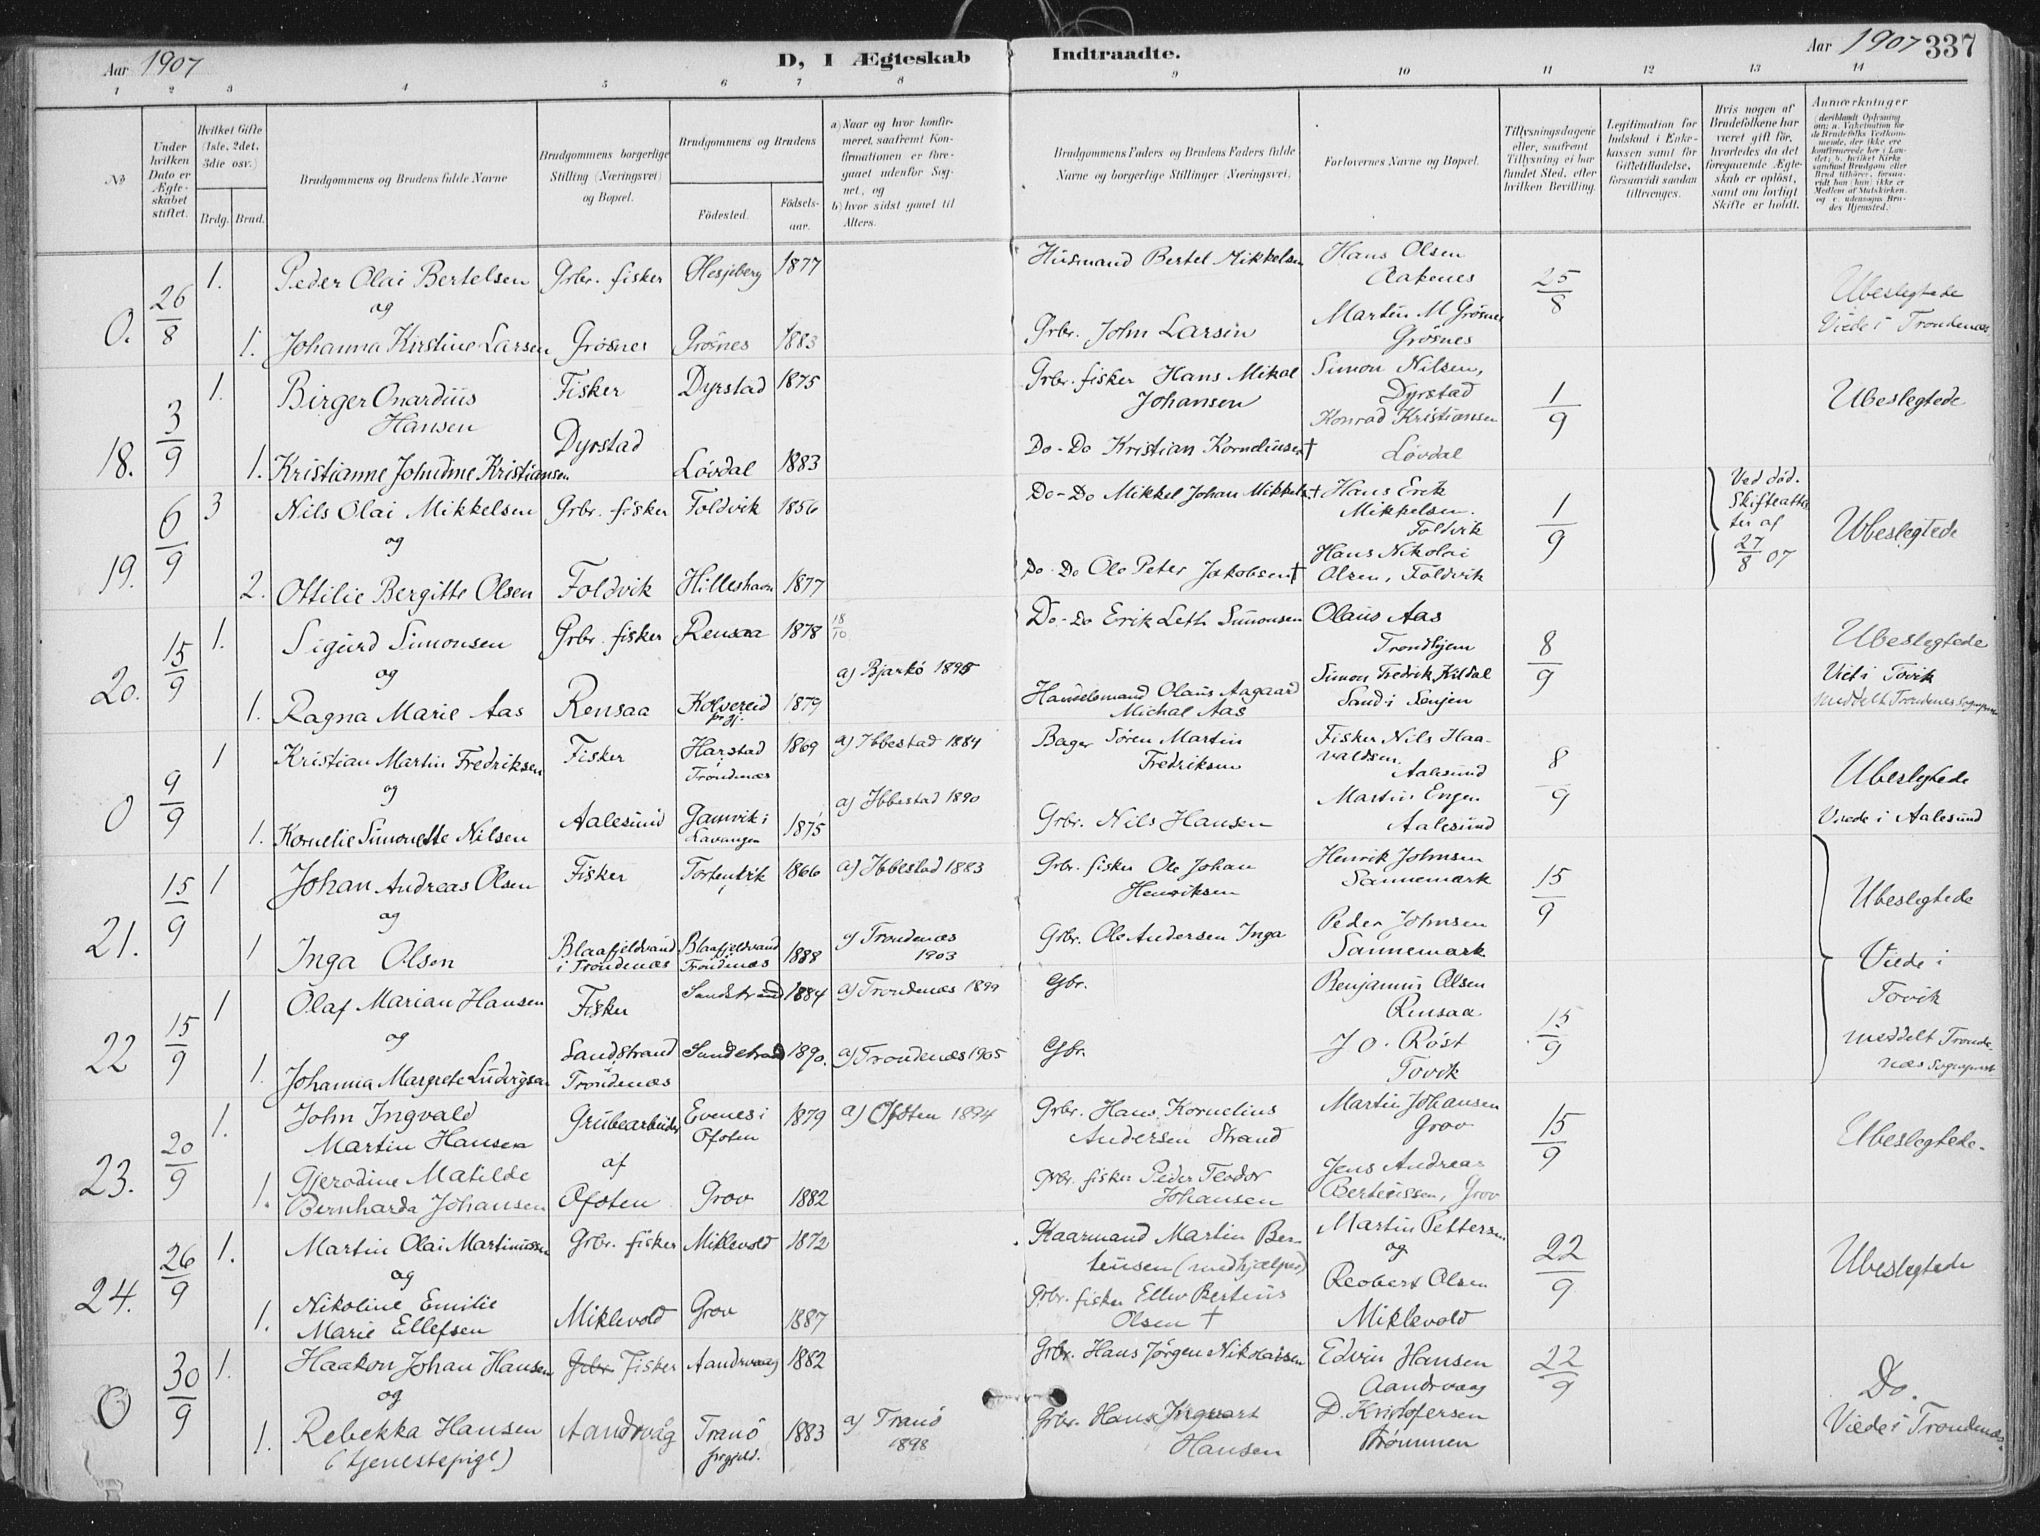 Aar 1907
D, I Ægteskab Indtraadte.
Aar 1907 337
1 2 3 4 5 6 7 8 9 10 11 12 13 14
No
Under hvilken Dato er Ægteskabet stiftet.
Hvilket Gifte (1ste, 2det, 3die osv.)
Brdg. Brud.
Brudgommens og Brudens fulde Navne
Brudgommens borgerlige Stilling (Næringsvei) og Bopæl.
Brudgommens og Brudens
Fødested. Fødselsaar.
a) Naar og hvor konfirmeret, saafremt Konfirmationen er foregaaet udenfor Sognet, og
b) hvor sidst gaaet til Alters.
Brudgommens Faders og Brudens Faders fulde Navne og borgerlige Stillinger (Næringsvei.
Forlovernes Navne og Bopæl.
Tillysningsdagene eller, saafremt Tillysning ei har fundet Sted, efter hvilken Bevilling.
Legitimation for Indskud i Enkekassen samt for Giftetilladelse, forsaavidt saadan tiltrænges.
Hvis nogen af Brudefolkene har været gift før, hvorledes da det foregaaende Ægteskab er opløst, samt om lovligt Skifte er holdt.
Anmærkninger
0. 26/8 1. Peder Olai Bertelsen Grbr. fisker Hesjeberg 1877 Husmand Bertel Mikkelsen Hans Olsen Aakenes 25/8 Ubeslegtede
og
1. Johanna Kirstine Larsen Grøsnes Grøsnes 1883 Grbr. John Larsen Martin M Grøsnes Grøsnes Viede i Trondenæs
18. 3/9 1. Birger Onardius Hansen Fisker Dyrstad 1875 Grbr. fisker Hans Mikal Johansen Simon Nilsen, Dyrstad 1/9 Ubeslegtede
1. Kristianne Johndine Kristiansen Dyrstad Løvdal 1883 Do - Do Kristian Korneliussen † Konrad Kristiansen Løvdal
19. 6/9 3 Nils Olai Mikkelsen Grbr. fisker Foldvik 1856 Do - Do Mikkel Johan Mikkels † Hans Erik Mikkelsen. Foldvik 1/9 Ved død. Skifteattester af 27/8 07 Ubeslegtede
og
2. Ottilie Bergitte Olsen Foldvik Hilleshavn 1877 Do - Do Ole Peter Jakobsen † Hans Nikolai Olsen, Foldvik
20. 15/9 1. Sigurd Simonsen Grbr. fisker Rensaa 1878 18/10 Do - Do Erik Leth Simonsen Olaus Aas Trondhjem 8/9 Ubeslegtede
og
1. Ragna Marie Aas Rensaa Kolvereid prgj. 1879 a) Bjarkö 1895 Handelsmand Olaus Aagaard Michal Aas Simon Fredrik Kildal Sand i Senjen Viet i Tovik meddelt Trondenes Sogneprest
0 9/9 1 Kristian Martin Fredriksen Fisker Harstad i Trondenæs 1869 a) Ibbestad 1884 Bager Søren Martin Fredriksen Fisker Nils Haavaldsen. Aalesund 8/9 Ubeslegtede
og
1. Kornelie Simonette Nilsen Aalesund Gamvik i Lavangen 1875 a) Ibbestad 1890 Grbr. Nils Hansen Martin Engen Aalesund Viede i Aalesund
21. 15/9 1 Johan Andreas Olsen Fisker 1866 a) Ibbestad 1883 Grbr. fisker Ole Johan Henriksen Henrik Johnsen Sannemark 15/9 Ubeslegtede
og
1 Inga Olsen Blaafjeldvand i Trondenæs Blaafjeldvand i Trondenæs 1888 a) Trondenæs 1903 Grbr. Ole Andersen Inga Peder Johnsen Sannemark Viede i Tovik meddelt Trondenæs Sogneprest
22 15/9 1 Olaf Marian Hansen Fisker Sandstrand 1884 a) Trondenæs 1899 Gbr. Benjamin Olsen Rensaa 15/9
og
1. Johanna Margrete Ludvigsen Sandstrand i Trondenæs Sandstrand 1890. a) Trondenæs 1905 Gbr. J O. Røst Tovik
23. 20/9 1. John Ingvald Martin Hansen Grubearbeider Evenes i Ofoten 1879 a) Ofoten 1894 Grbr. Hans Kornelius Andersen Strand Martin Johansen Grov 15/9 Ubeslegtede.
1. Gjerodine Matilde Bernharda Johansen af Ofoten Grov 1882 Grbr. fisker Peder Teodor Johansen Jens Andreas Berteussen, Grov
24. 26/9 1. Martin Olai Martinussen Grbr. fisker Miklevold 1872 Kaarmand Martin Berteusen (medhjælper) Martin Pettersen 22/9 Ubeslegtede
og og
1. Nikoline Emilie Marie Ellefsen Miklevold Grov 1887 Grbr. fisker Ellev Bertius Olsen † Reobert Olsen Miklevold
0 30/9 1. Haakon Johan Hansen Grbr Fisker Aandrvaag 1882 Grbr. Hans Jørgen Nikolaisen Edvin Hansen Aandrvaag 22/9 Do.
og
1. Rebekka Hansen (tjenestepige) Aandrvåg Tranö prgjeld. 1883 a) Tranö 1898 Grbr. Hans Ingvart Hansen D. Kristofersen Brømmen Viede i Trondenæs.